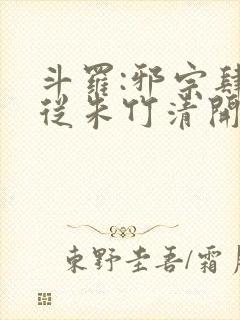 斗羅:邪宗肆
從朱竹清開
東野圭吾/霜月